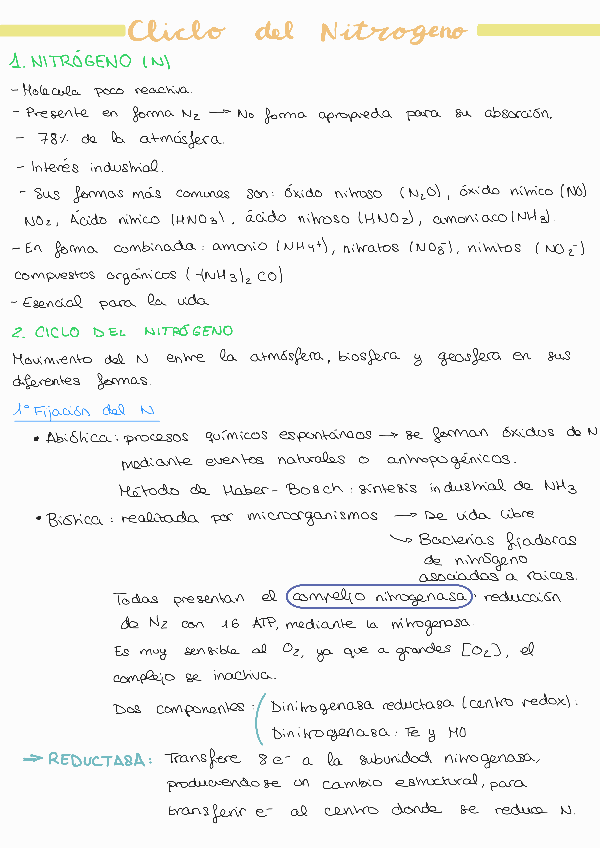 Cliclo del Nitrogeno
1. NITRÓGENO (N)
- Molecula poco reactiva.
- Presente en forma N₂ → No forma apropieda para su absorción.
- 78% de la atmósfera.
- Interés industrial.
- Sus formas más comunes son: óxido nitroso (N₂O), óxido nítrico (NO)
NO₂, Ácido nítrico (HNO₃), ácido nitroso (HNO₂), amoniaco (NH₃).
- En forma combinada: amonio (NH₄⁺), nitratos (NO₃⁻), nitritos (NO₂⁻)
compuestos orgánicos (-(NH₃)₂ CO)
- Esencial para la vida
2. CICLO DEL NITRÓGENO
Movimiento del N entre la atmósfera, biosfera y geosfera en sus
diferentes formas.
1º Fijación del N
• Abiótica: procesos químicos espontáneos → se forman óxidos de N
mediante eventos naturales o antropogénicos.
Método de Haber-Bosch: síntesis industrial de NH₃
• Biótica: realizada por microorganismos → De vida libre
↳ Bacterias fijadoras
de nitrógeno
asociadas a raices.
Todas presentan el complejo nitrogenasa: reducción
de N₂ con 16 ATP, mediante la nitrogenasa
Es muy sensible al O₂, ya que a grandes [O₂], el
complejo se inactiva.
Dos componentes: Dinitrogenasa reductasa (centro redox).
Dinitrogenasa: Fe y MO
→ REDUCTASA: Transfere 8 e⁻ a la subunidad nitrogenasa,
produciendose un cambio estructural, para
transferir e⁻ al centro donde se reduce N.